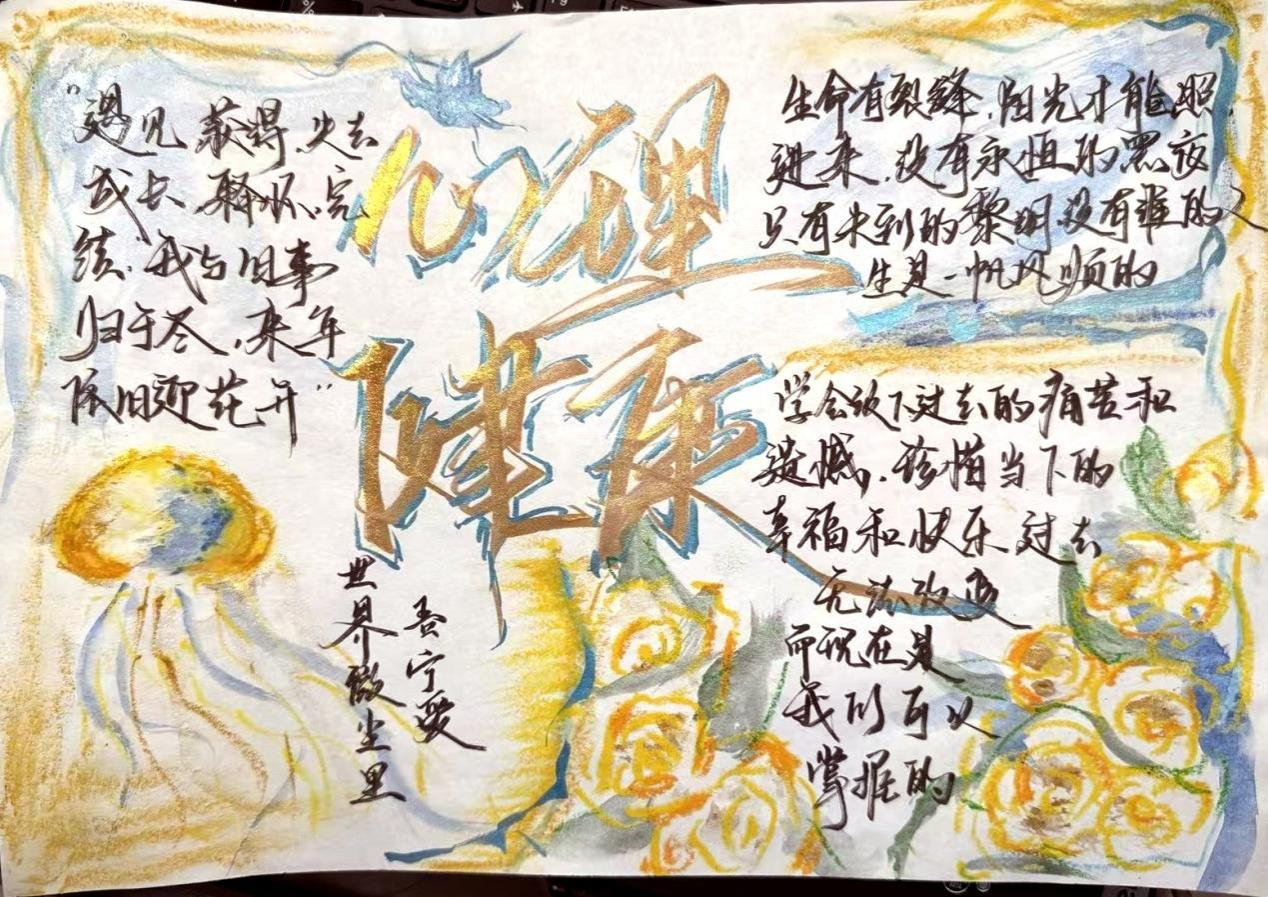 心理
健康
"遇见、获得、失去
成长、释怀、完
结.我与旧事
归于尽,来年
依旧迎花开"
生命有裂缝,阳光才能照
进来.没有永恒的黑夜
只有未到的黎明没有谁的人
生是一帆风顺的
学会放下过去的痛苦和
遗憾,珍惜当下的
幸福和快乐过去
无法改变
而现在是
我们可以
掌握的
世界微尘里
吾宁爱